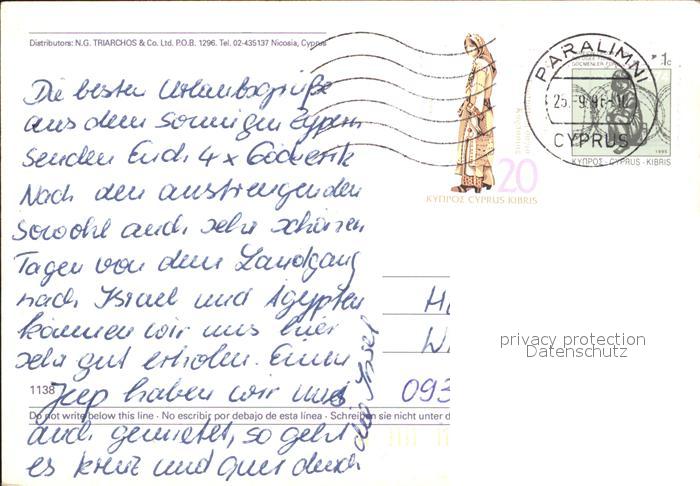 Distributors: N.G. TRIARCHOS & Co. Ltd. P.O.B. 1296. Tel. 02-435137 Nicosia, Cyprus
Die besten Urlaubsgrüße
aus dem sonnigen Zypern
senden Euch 4 x
Nach den anstrengenden
sowohl auch sehr schönen
Tagen von dem Landgang
nach Israel und Ägypten
können wir uns hier
sehr gut erholen. Einen
Jeep haben wir uns
auch gemietet, so geht
es kreuz und quer durch
die Insel
1138
Do not write below this line · No escribir por debajo de esta línea · Schreiben sie nicht unter d
20
ΚΥΠΡΟΣ CYPRUS KIBRIS
PARALIMNI
25.-9.96-10
CYPRUS
1c
ΚΥΠΡΟΣ · CYPRUS · KIBRIS
1995
H
W
093
privacy protection
Datenschutz